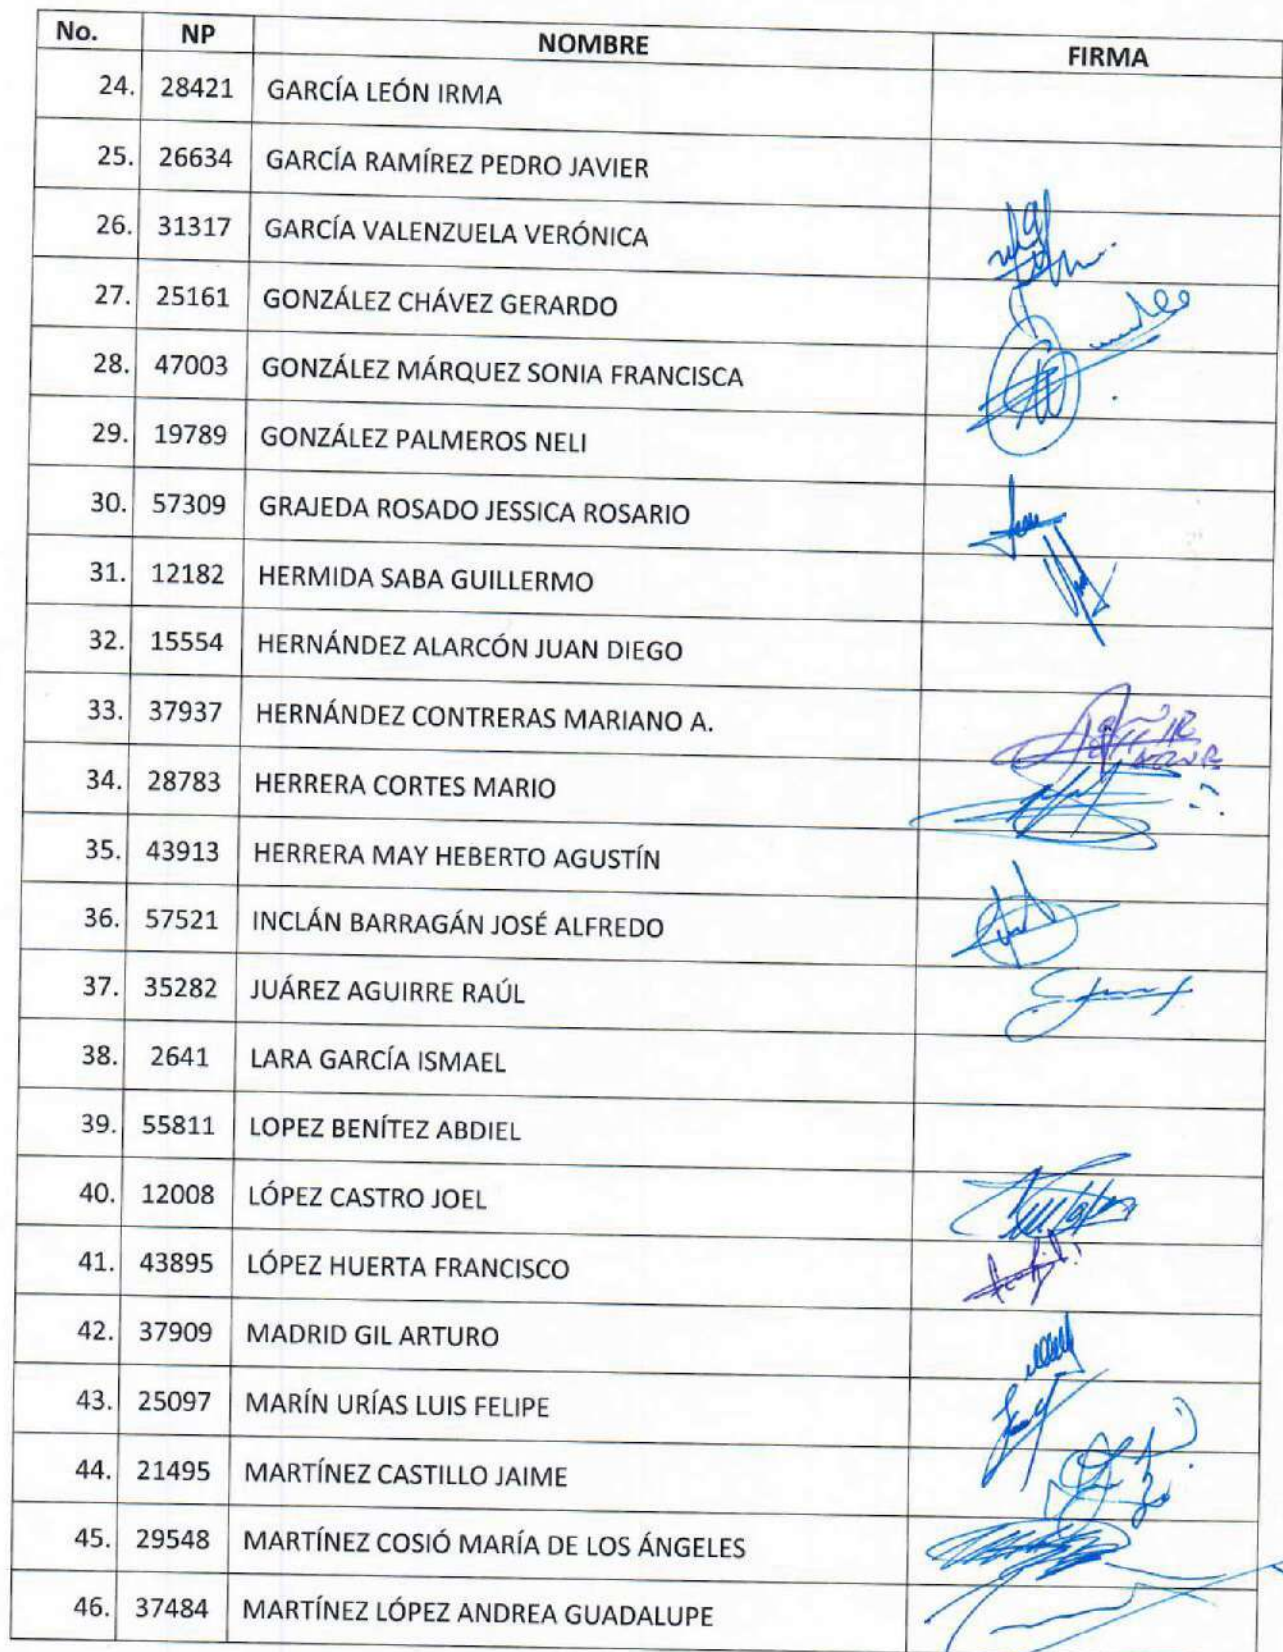 No. NP NOMBRE FIRMA
24. 28421 GARCÍA LEÓN IRMA
25. 26634 GARCÍA RAMÍREZ PEDRO JAVIER
26. 31317 GARCÍA VALENZUELA VERÓNICA
27. 25161 GONZÁLEZ CHÁVEZ GERARDO
28. 47003 GONZÁLEZ MÁRQUEZ SONIA FRANCISCA
29. 19789 GONZÁLEZ PALMEROS NELI
30. 57309 GRAJEDA ROSADO JESSICA ROSARIO
31. 12182 HERMIDA SABA GUILLERMO
32. 15554 HERNÁNDEZ ALARCÓN JUAN DIEGO
33. 37937 HERNÁNDEZ CONTRERAS MARIANO A.
34. 28783 HERRERA CORTES MARIO
35. 43913 HERRERA MAY HEBERTO AGUSTÍN
36. 57521 INCLÁN BARRAGÁN JOSÉ ALFREDO
37. 35282 JUÁREZ AGUIRRE RAÚL
38. 2641 LARA GARCÍA ISMAEL
39. 55811 LOPEZ BENÍTEZ ABDIEL
40. 12008 LÓPEZ CASTRO JOEL
41. 43895 LÓPEZ HUERTA FRANCISCO
42. 37909 MADRID GIL ARTURO
43. 25097 MARÍN URÍAS LUIS FELIPE
44. 21495 MARTÍNEZ CASTILLO JAIME
45. 29548 MARTÍNEZ COSIÓ MARÍA DE LOS ÁNGELES
46. 37484 MARTÍNEZ LÓPEZ ANDREA GUADALUPE